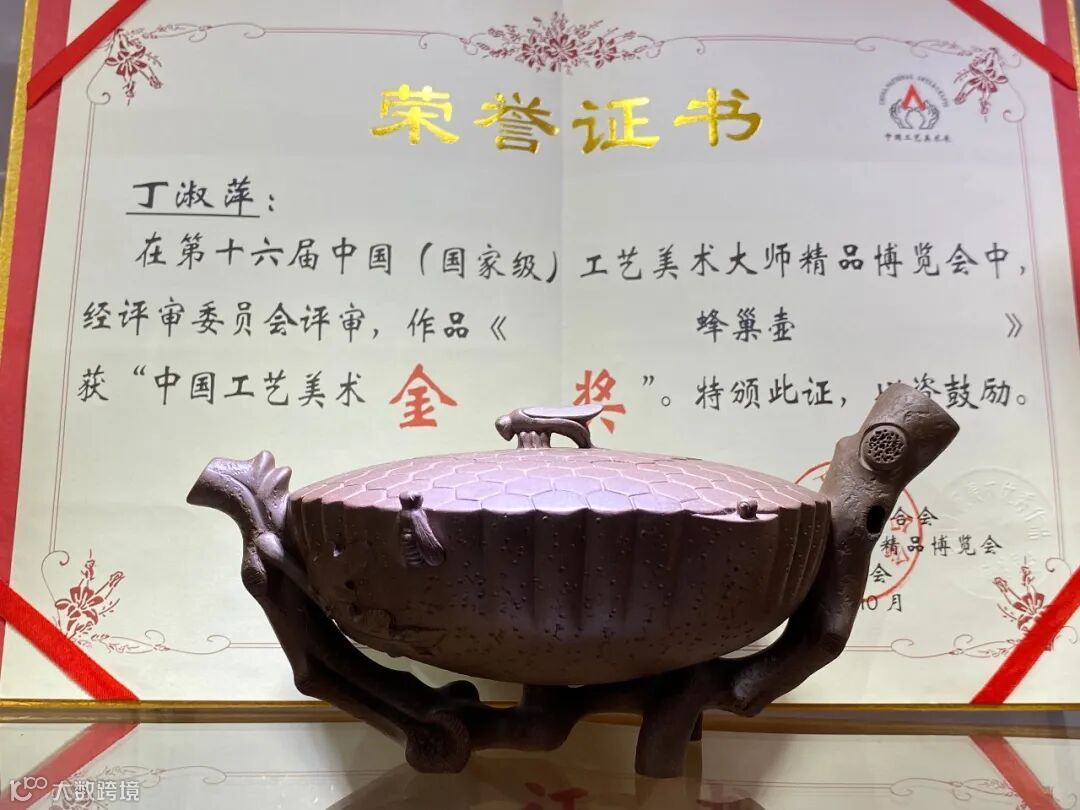 荣誉证书
CHINA NATIONAL ARTS & CRAFTS
中国工艺美术
丁淑萍：
在第十六届中国（国家级）工艺美术大师精品博览会中，
经评审委员会评审，作品《 蜂巢壶 》
获“中国工艺美术 金 奖”。特颁此证，以资鼓励。
合会
精品博览会
会
10月
大数跨境